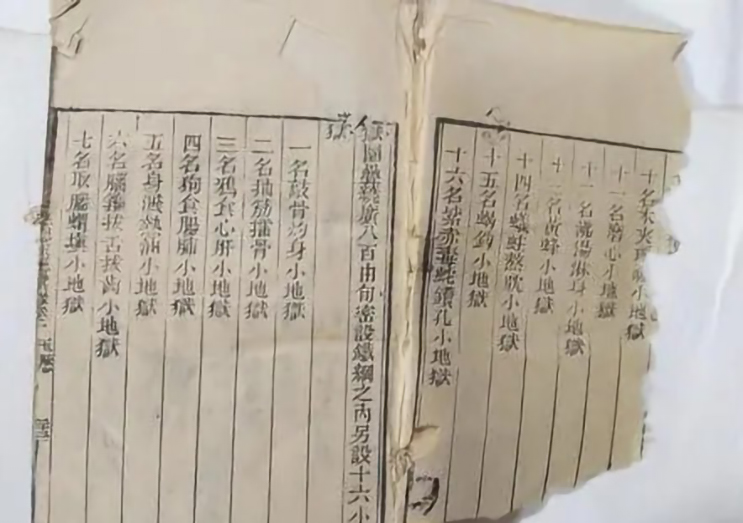 十名木夾小地獄
十一名磨心小地獄
十二名沸湯淋身小地獄
十三名黃蜂小地獄
十四名蟻蛀熬眈小地獄
十五名蝎鈎小地獄
十六名紫赤毒蛇鑽孔小地獄
圍疊繞廣八百由旬密設鐵網之內另設十六小
獄
一名敲骨灼身小地獄
二名抽筋擂骨小地獄
三名鴉食心肝小地獄
四名狗食腸肺小地獄
五名身濺熱油小地獄
六名腦箍拔舌拔齒小地獄
七名取腦蝟填小地獄
玉歷